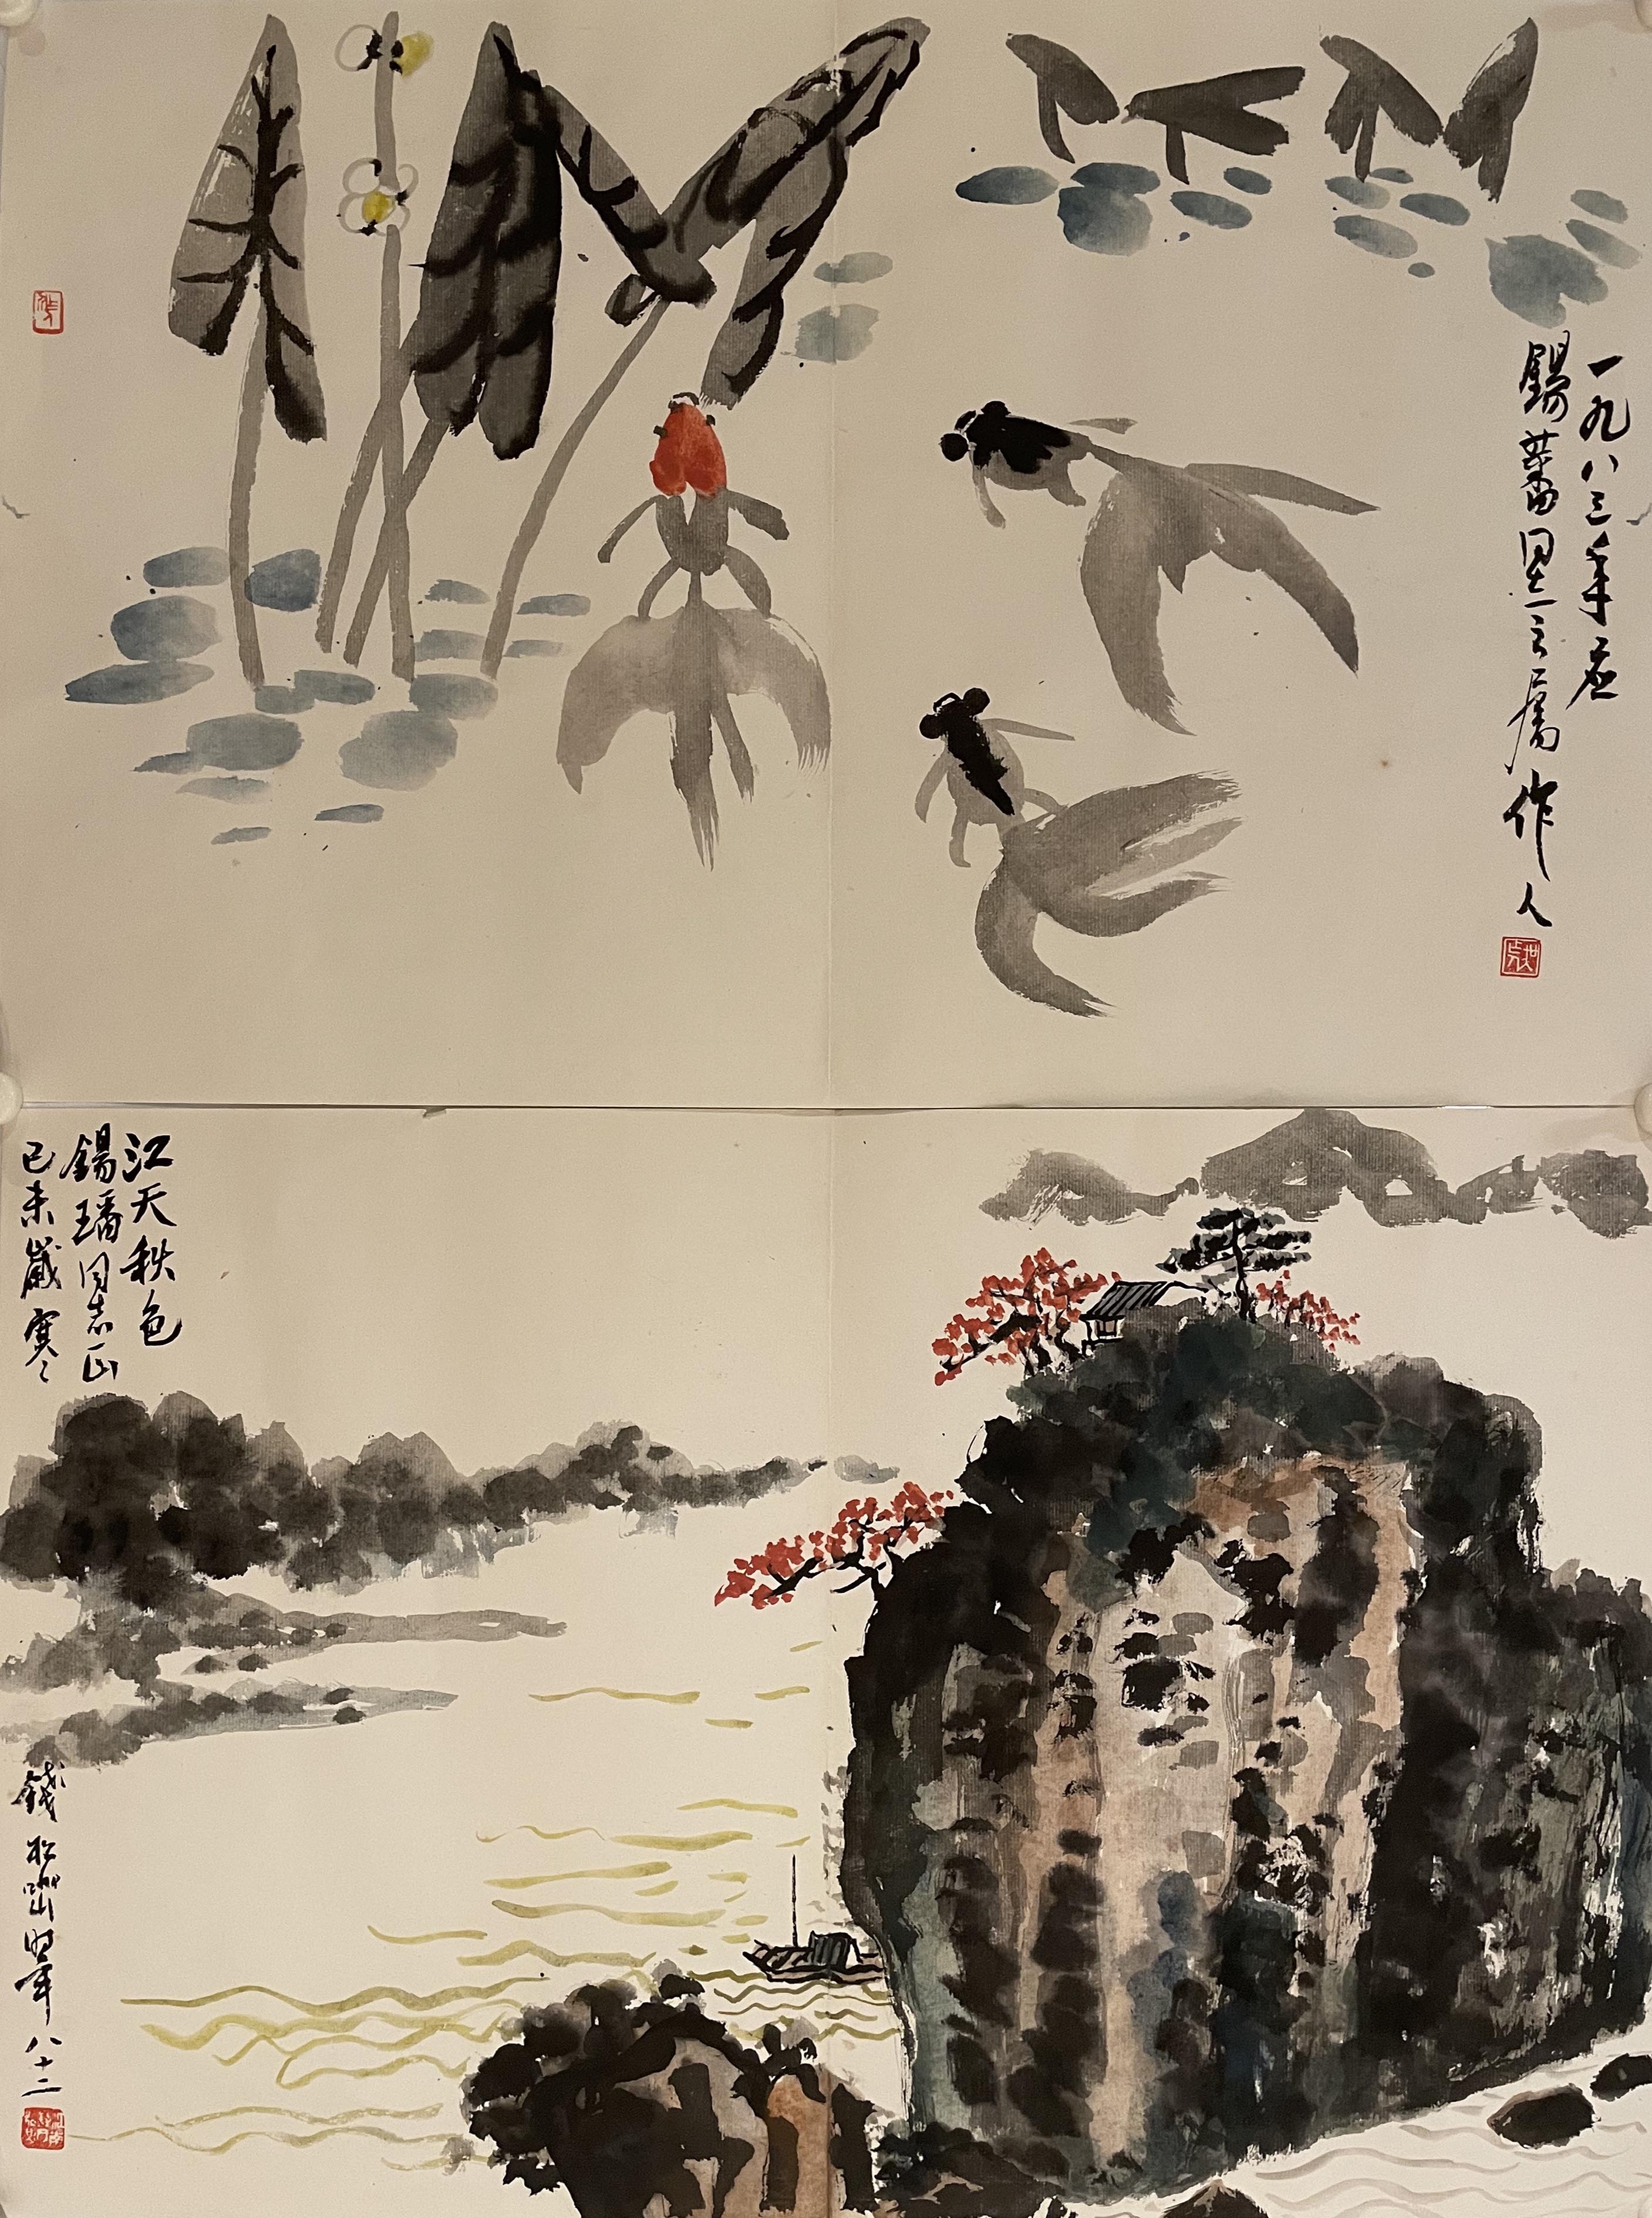 一九八三年应
锡蕃同志之属 作人
江天秋色
錫璠同志正
己未歲寒
錢松嵒 八十二